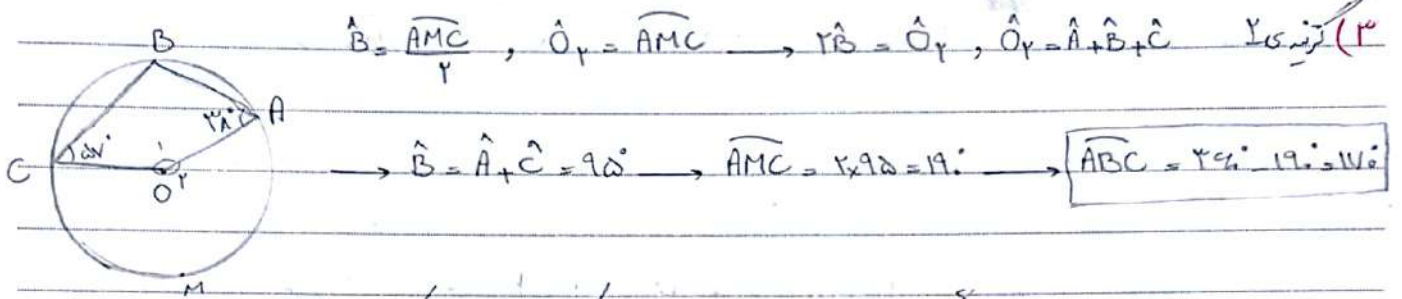 ۳) گزینه‌ی ۲ B̂ = AMC/۲ , Ô۲ = AMC → ۲B̂ = Ô۲ , Ô۲ = Â + B̂ + Ĉ
→ B̂ = Â + Ĉ = ۹۵° → AMC = ۲×۹۵ = ۱۹۰° → ABC = ۳۶۰° - ۱۹۰° = ۱۷۰°
B
A
۳۸°
C
۵۷°
۱
O
۲
M